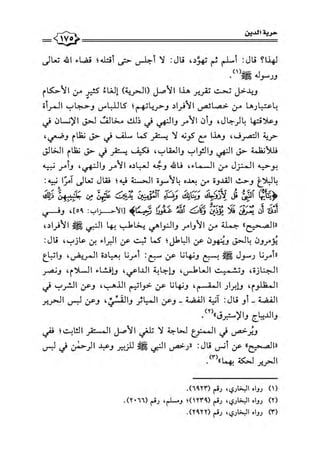 حرية الدين
١٧٥
لهذا؟ قال: أسلم ثم تهوَّد، قال: لا أجلس حتى أقتله؛ قضاء الله تعالى
ورسوله ﷺ(١).
ويدخل تحت تقرير هذا الأصل (الحرية) إلغاءُ كثيرٍ من الأحكام
باعتبارها من خصائص الأفراد وحرياتهم؛ كاللباس وحجاب المرأة
وعلاقتها بالرجال، وأن الأمر والنهي في ذلك مخالفٌ لحق الإنسان في
حرية التصرف، وهذا مع كونه لا يستقر كما سلف في حق نظام وضعي،
فللأنظمة حق النهي والثواب والعقاب، فكيف يستقر في حق نظام الخالق
بوحيه المنزل من السماء، فالله وجَّه لعباده الأمر والنهي، وأمر نبيه
بالبلاغ وحث القدوة من بعده بالأسوة الحسنة فيه؛ فقال تعالى آمرًا نبيه:
﴿يَٰٓأَيُّهَا ٱلنَّبِىُّ قُل لِّأَزۡوَٰجِكَ وَبَنَاتِكَ وَنِسَآءِ ٱلۡمُؤۡمِنِينَ يُدۡنِينَ عَلَيۡهِنَّ مِن جَلَٰبِيبِهِنَّ ذَٰلِكَ
أَدۡنَىٰٓ أَن يُعۡرَفۡنَ فَلَا يُؤۡذَيۡنَ وَكَانَ ٱللَّهُ غَفُورٗا رَّحِيمٗا﴾ [الأحـزاب: ٥٩]، وفـــي
«الصحيح» جملة من الأوامر والنواهي يخاطب بها النبي ﷺ الأفراد،
يُؤمرون بالحق ويُنهون عن الباطل؛ كما ثبت عن البراء بن عازب، قال:
«أمرنا رسول ﷺ بسبع ونهانا عن سبع: أمرنا بعيادة المريض، واتباع
الجنازة، وتشميت العاطس، وإجابة الداعي، وإفشاء السلام، ونصر
المظلوم، وإبرار المقسم، ونهانا عن خواتيم الذهب، وعن الشرب في
الفضة ـ أو قال: آنية الفضة ـ وعن المياثر والقَسِّيِّ، وعن لبس الحرير
والديباج والإستبرق»(٢).
ويُرخص في الممنوع لحاجة لا تلغي الأصل المستقر الثابت؛ ففي
«الصحيح» عن أنس قال: «رخص النبي ﷺ للزبير وعبد الرحمٰن في لبس
الحرير لحكة بهما»(٣).
(١) رواه البخاري، رقم (٦٩٢٣).
(٢) رواه البخاري، رقم (١٢٣٩)؛ ومسلم، رقم (٢٠٦٦).
(٣) رواه البخاري، رقم (٢٩٢٢).